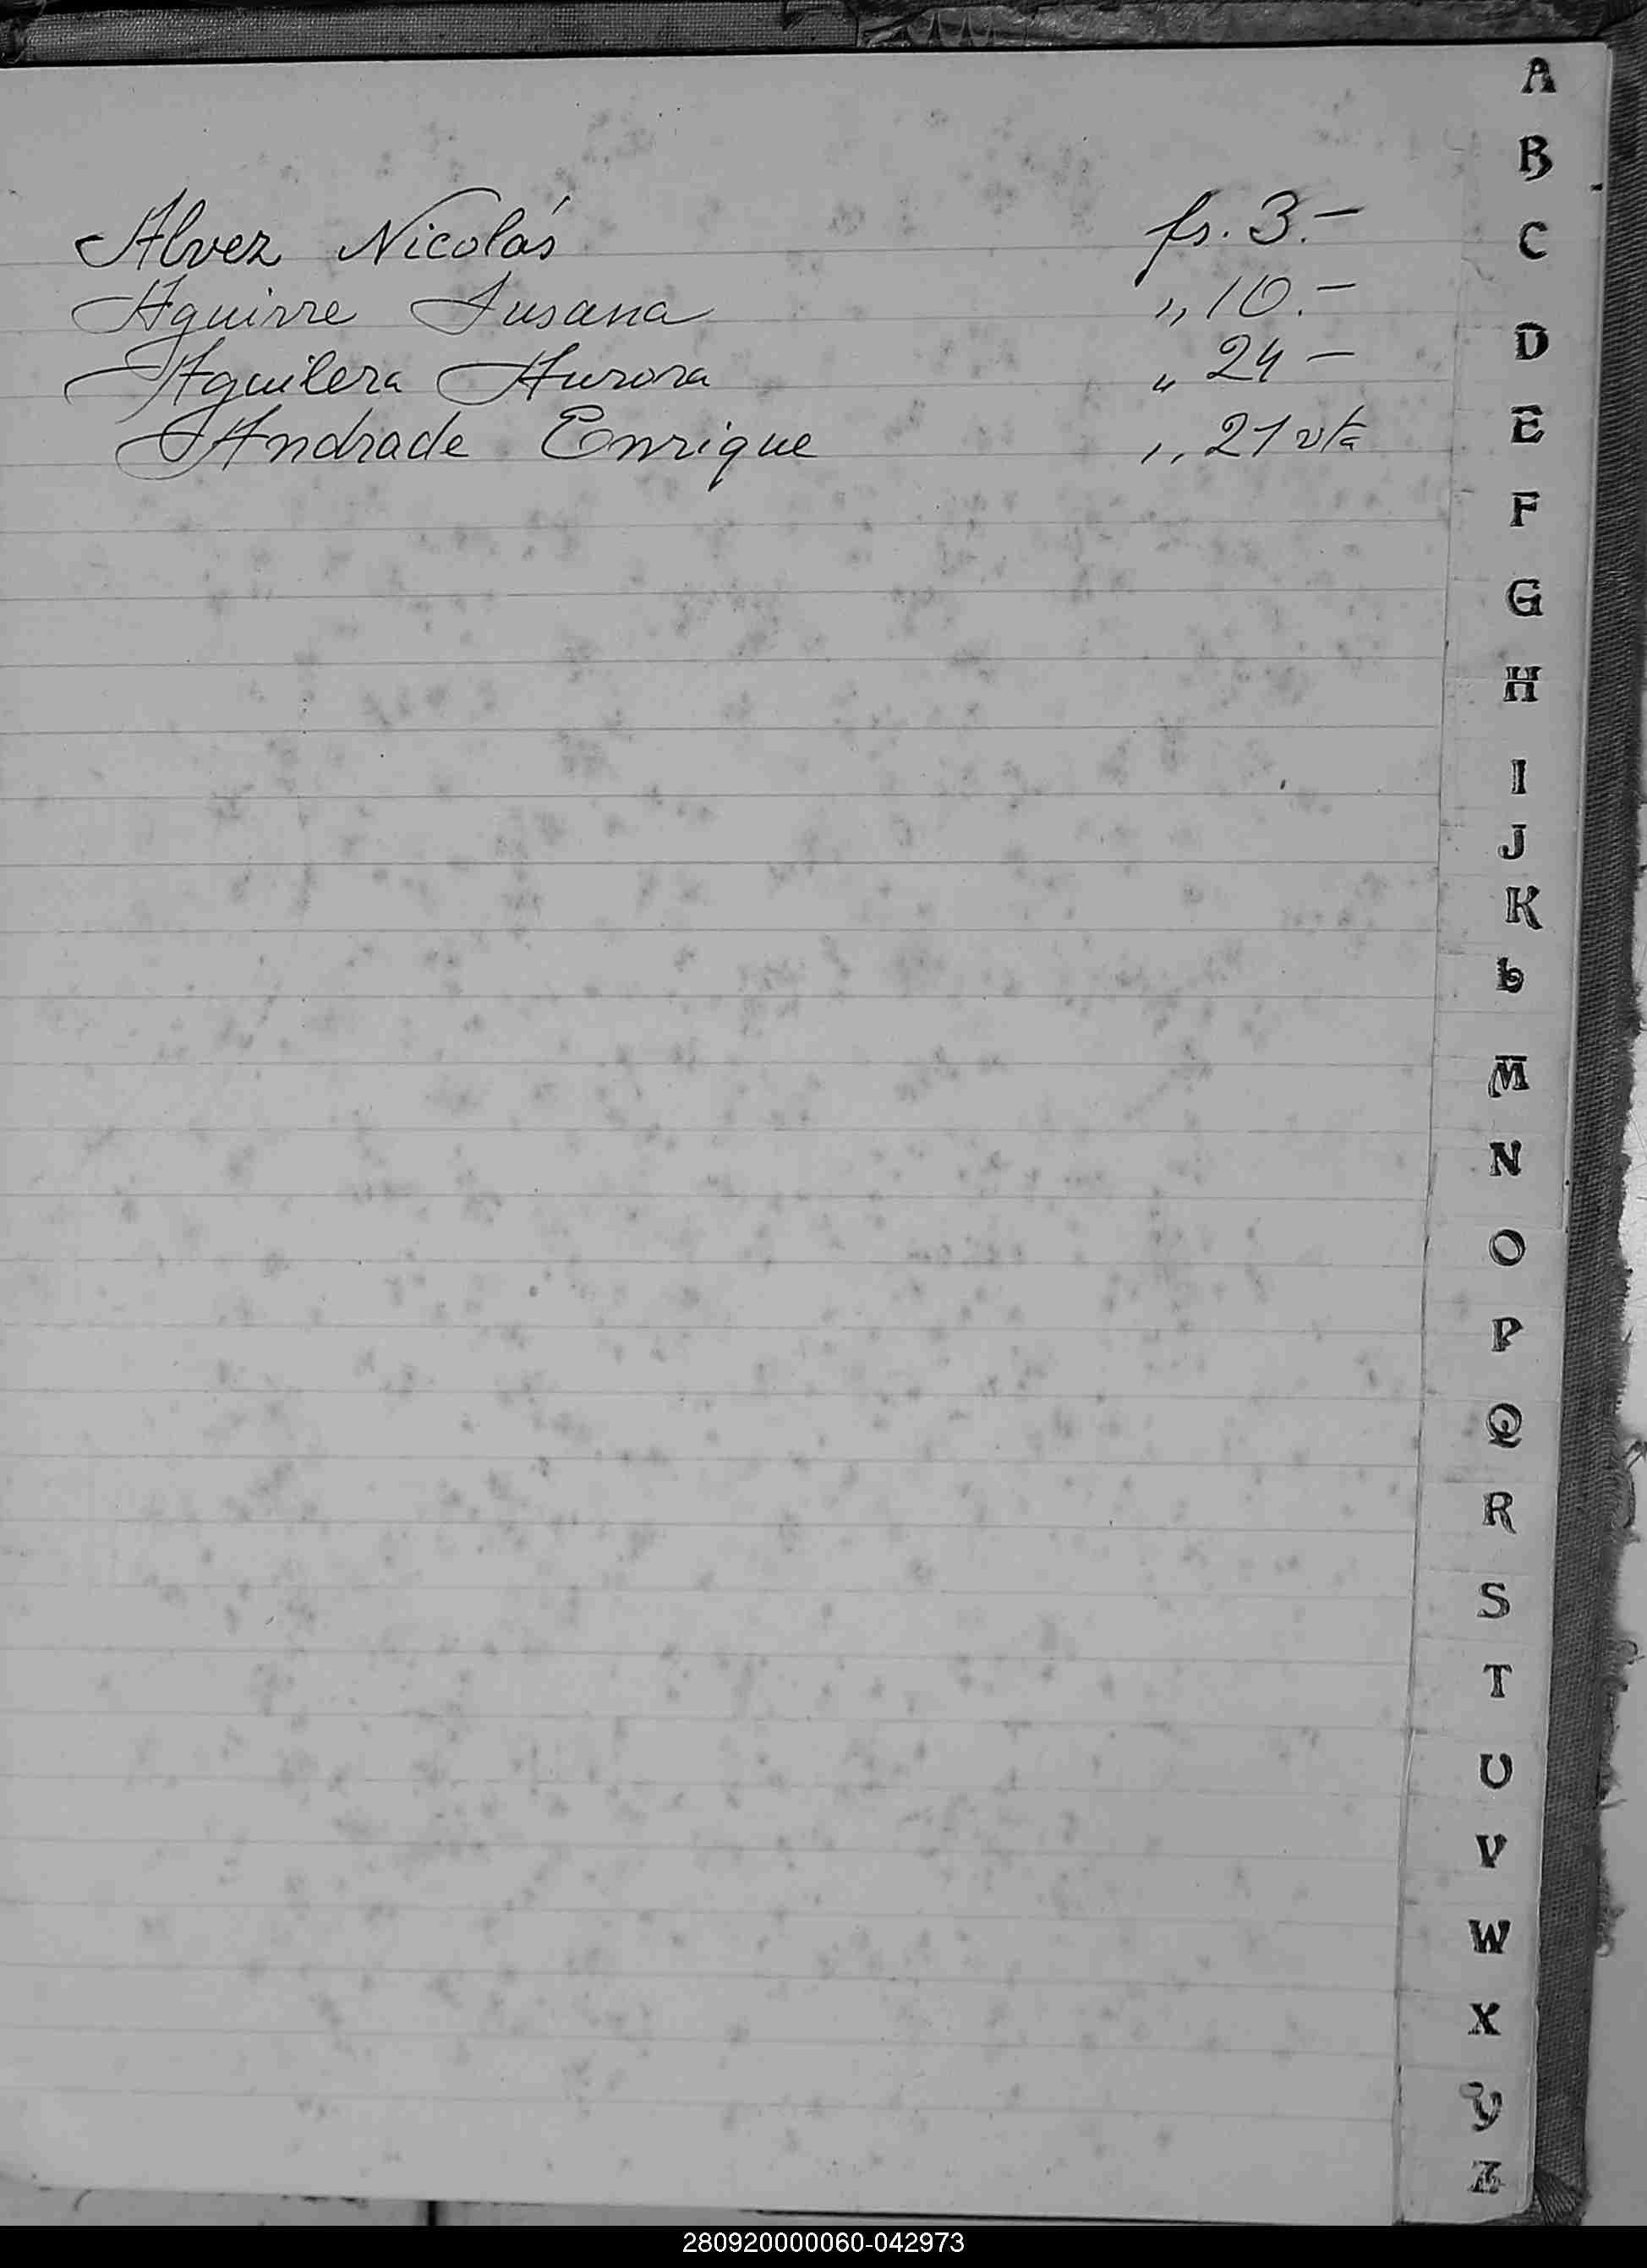 A
B
C
Alvez Nicolás fs. 3.-
Aguirre Susana ,, 10.-
Aguilera Aurora ,, 24 -
Andrade Enrique ,, 21 vta
D
E
F
G
H
I
J
K
L
M
N
O
P
Q
R
S
T
U
V
W
X
Y
Z
280920000060-042973